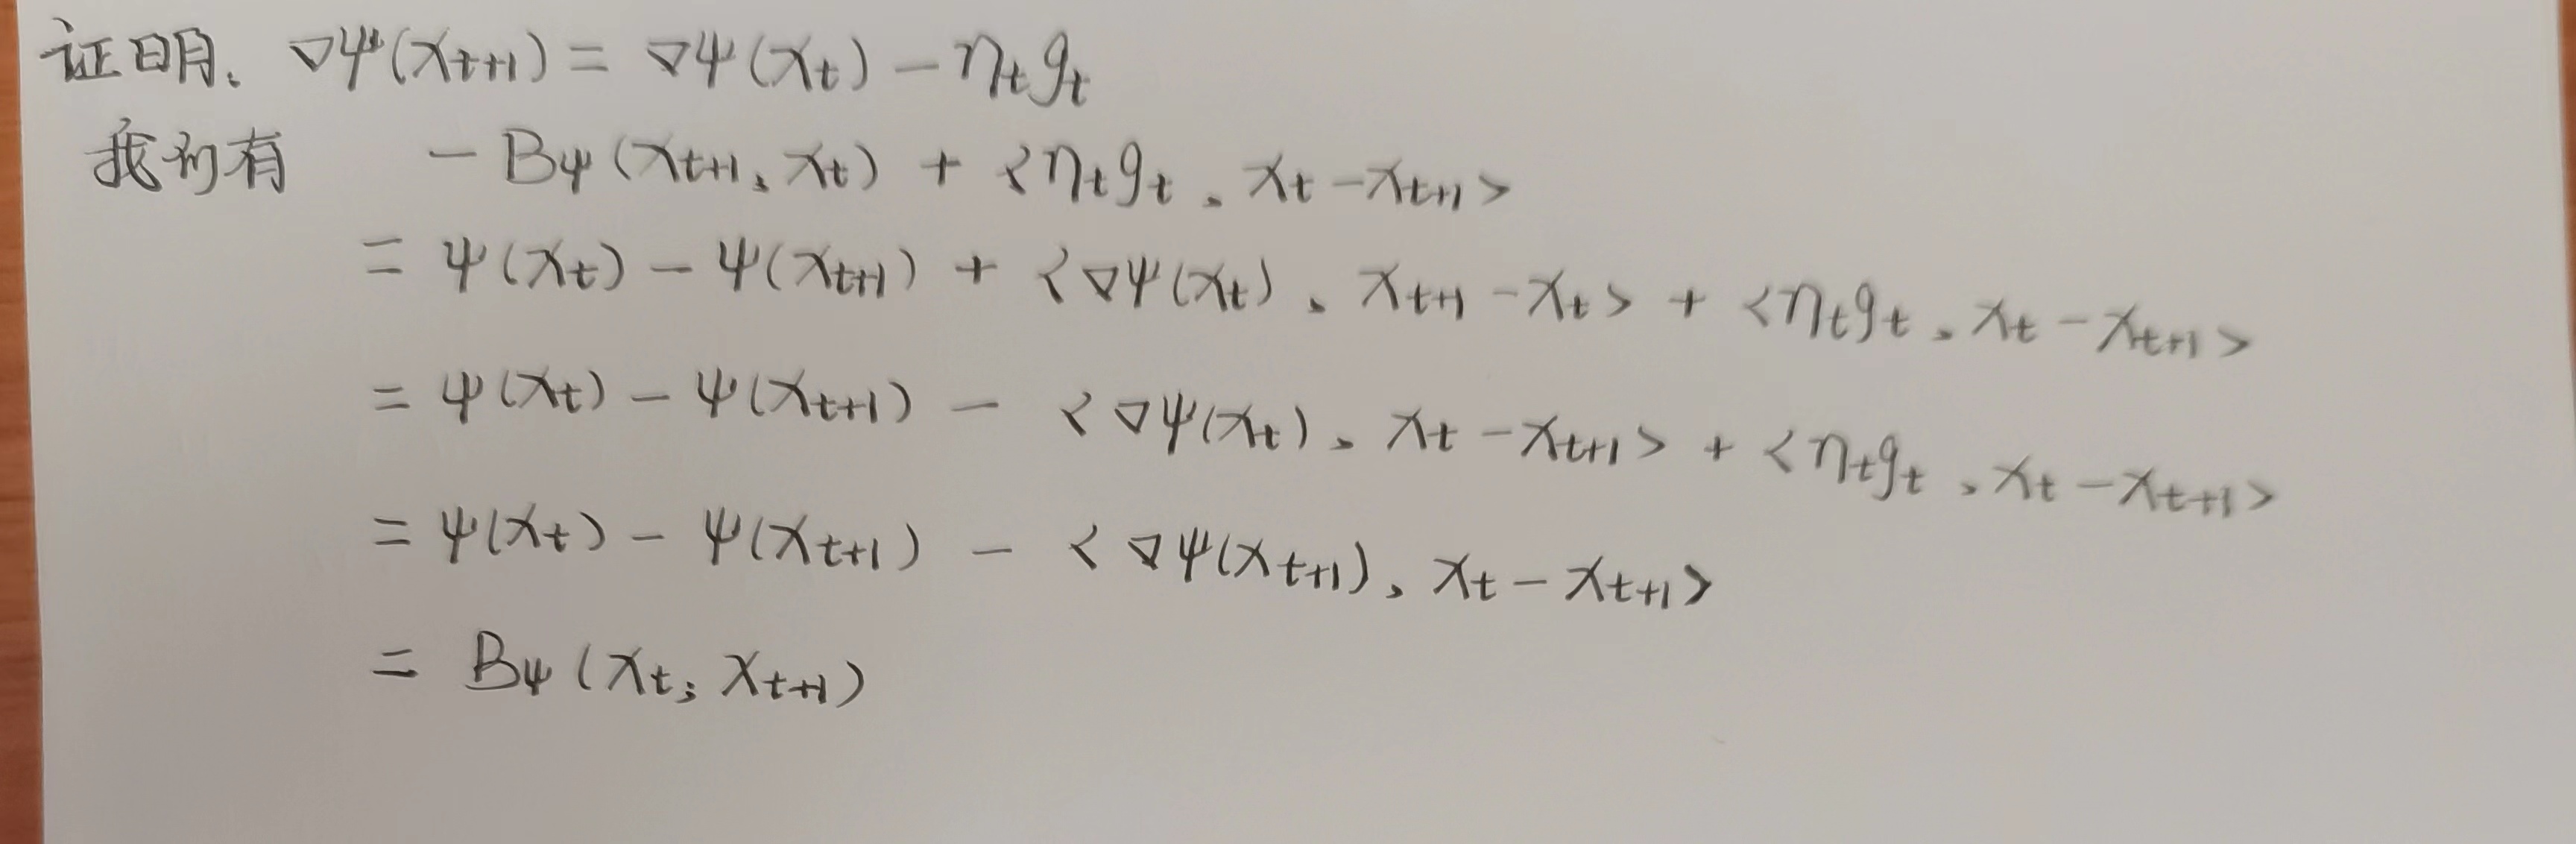 证明、∇ψ(x_{t+1}) = ∇ψ(x_t) − η_t g_t
我们有 − B_ψ(x_{t+1}, x_t) + <η_t g_t, x_t − x_{t+1}>
= ψ(x_t) − ψ(x_{t+1}) + <∇ψ(x_t), x_{t+1} − x_t> + <η_t g_t, x_t − x_{t+1}>
= ψ(x_t) − ψ(x_{t+1}) − <∇ψ(x_t), x_t − x_{t+1}> + <η_t g_t, x_t − x_{t+1}>
= ψ(x_t) − ψ(x_{t+1}) − <∇ψ(x_{t+1}), x_t − x_{t+1}>
= B_ψ(x_t; x_{t+1})